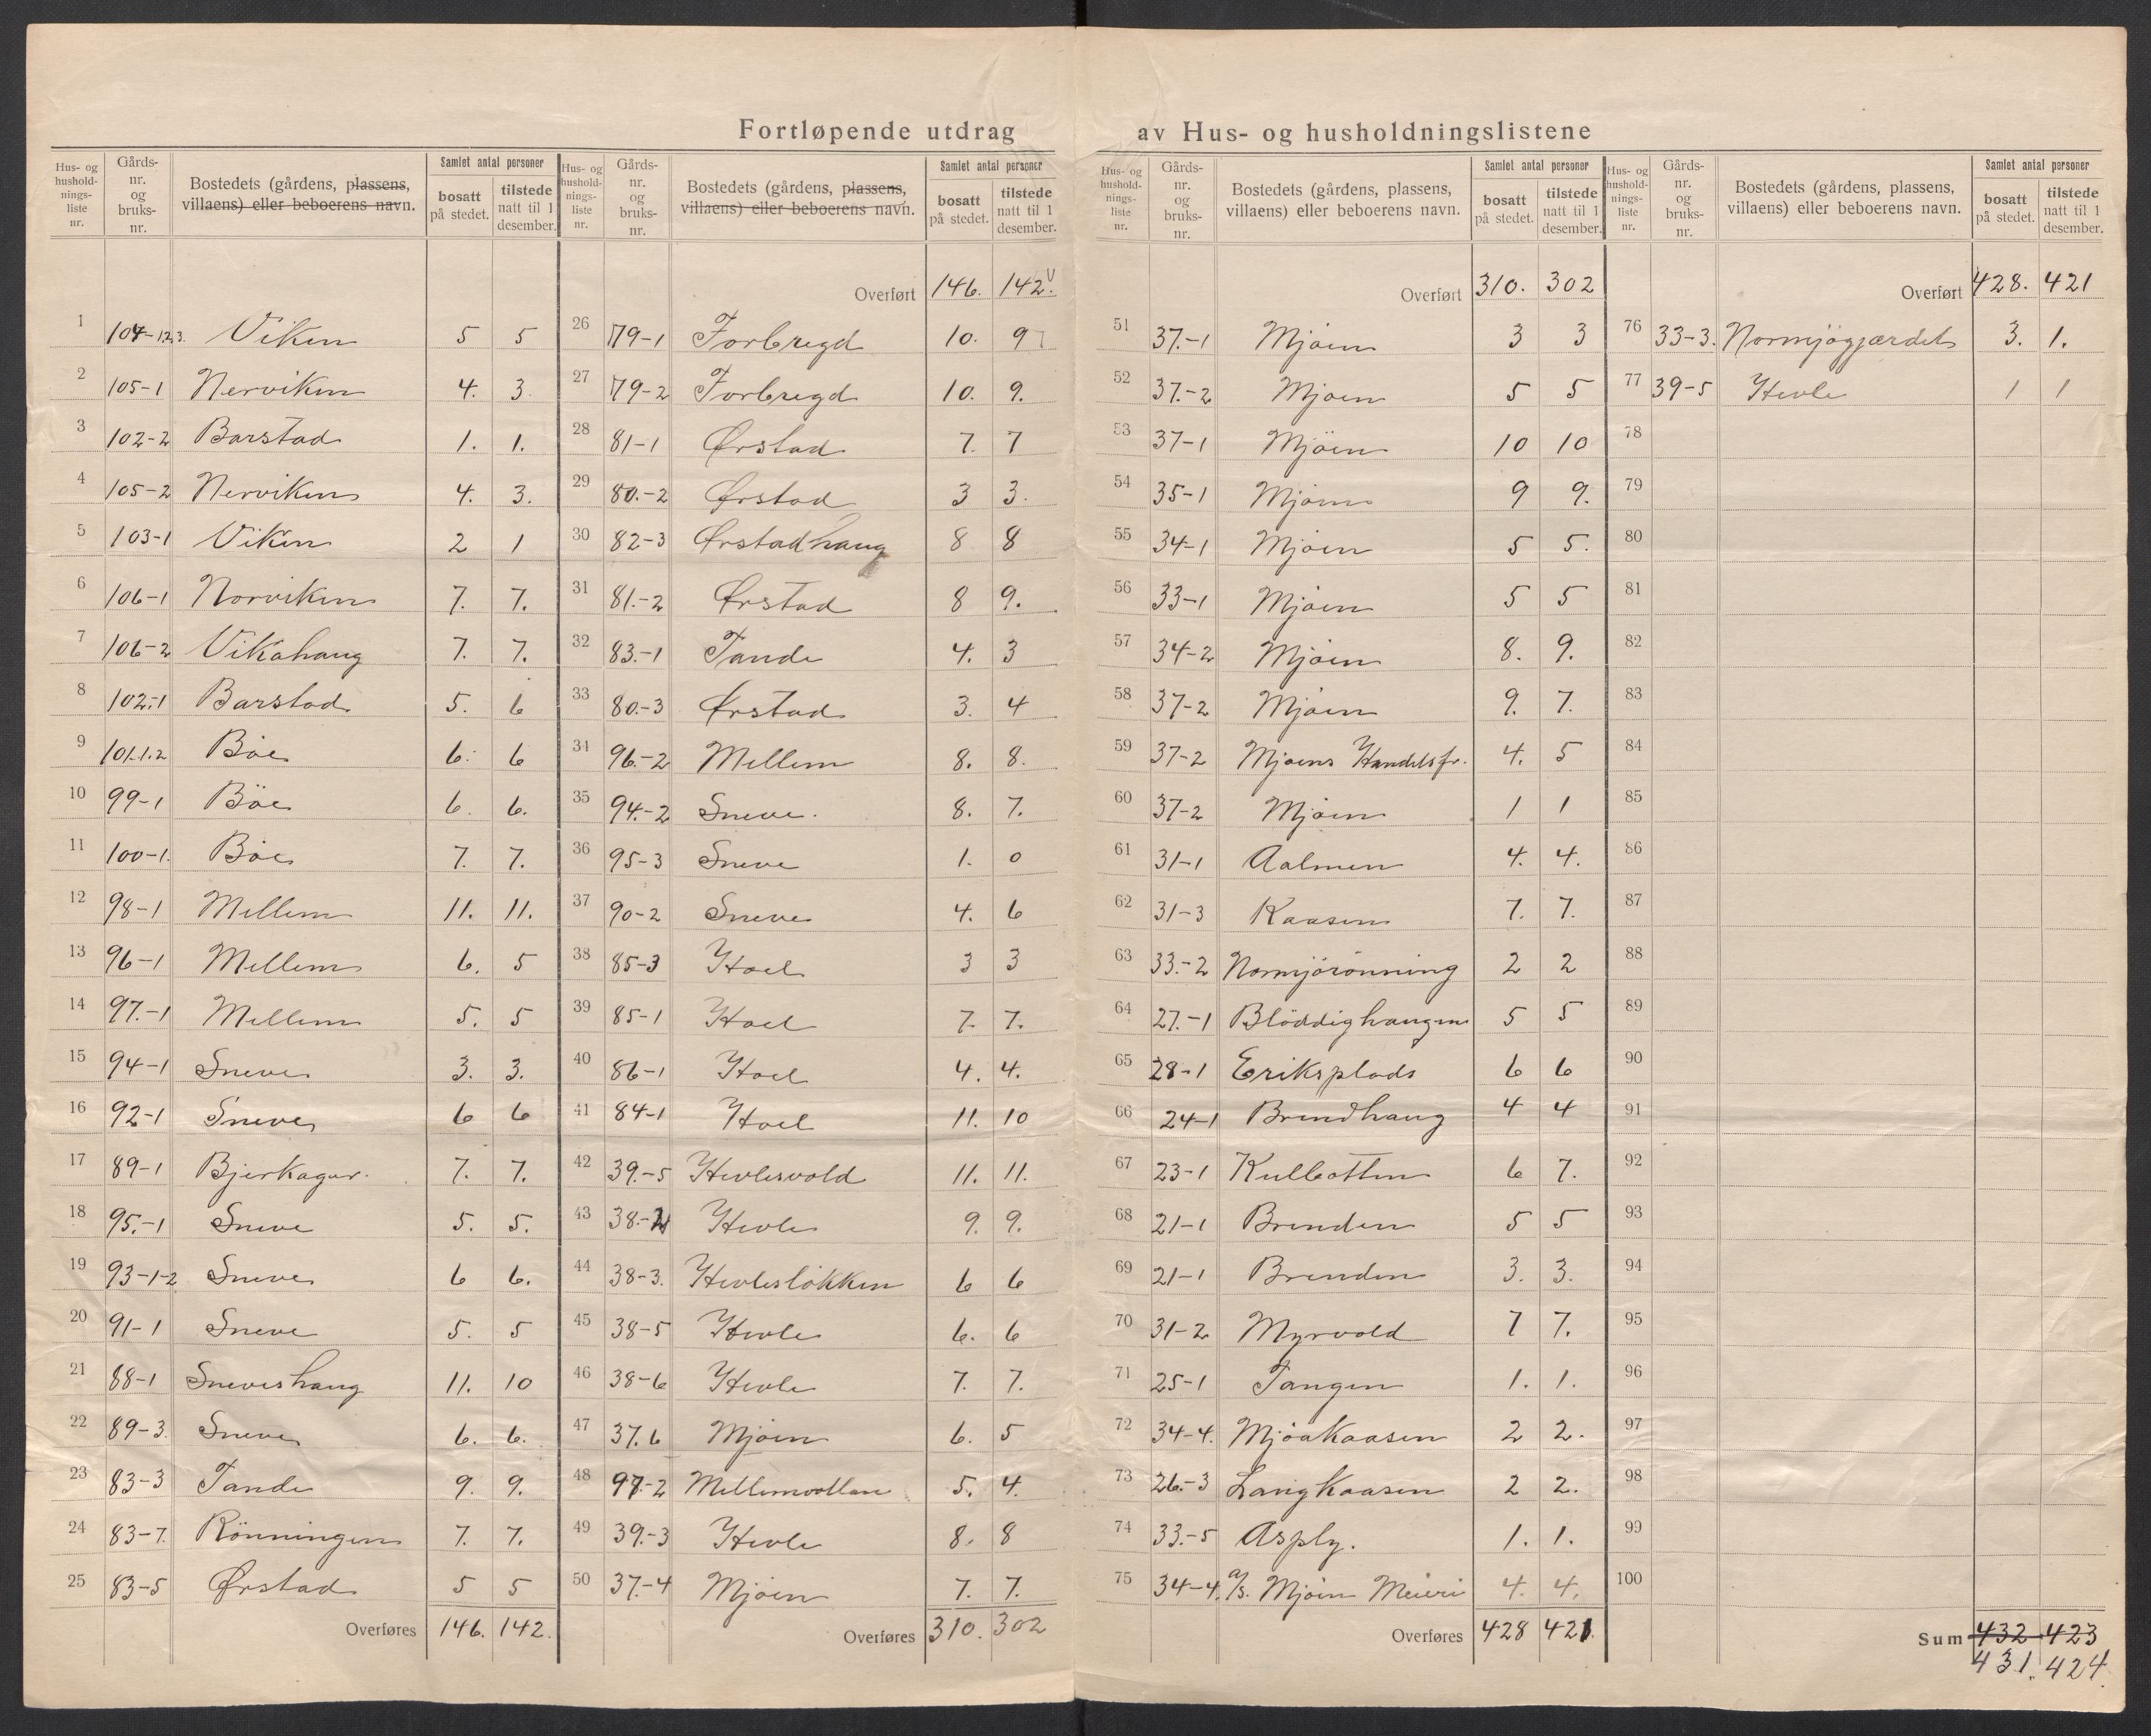 Fortløpende utdrag av Hus- og husholdningslistene
Hus- og husholdnings- liste nr. | Gårds- nr. og bruks- nr. | Bostedets (gårdens, plassens, villaens) eller beboerens navn. | Samlet antal personer | bosatt på stedet. | tilstede natt til 1 desember.
1 104-1,2,3. Viken 5 5
2 105-1 Nerviken 4. 3
3 102-2 Barstad 1. 1.
4 105-2 Nerviken 4. 3.
5 103-1 Viken 2 1
6 106-1 Norviken 7. 7.
7 106-2 Vikahaug 7. 7.
8 102-1 Barstad 5. 6
9 101.1.2 Böe 6. 6
10 99-1 Böe 6. 6.
11 100-1. Böe 7. 7.
12 98-1 Mellem 11. 11.
13 96-1 Mellem 6. 5
14 97.-1 Mellem 5. 5
15 94-1 Sneve 3. 3.
16 92-1 Sneve 6 6
17 89-1 Bjerkager. 7. 7.
18 95.-1 Sneve 5. 5.
19 93-1-2 Sneve 6 6.
20 91-1 Sneve 5. 5
21 88-1 Sneveshaug 11. 10
22 89-3. Sneve 6. 6.
23 83-3 Tande 9. 9.
24 83-7. Rönningen 7. 7.
25 83-5 Ørstad 5 5
Overføres 146. 142.
Hus- og husholdnings- liste nr. | Gårds- nr. og bruks- nr. | Bostedets (gårdens, plassens, villaens) eller beboerens navn. | Samlet antal personer | bosatt på stedet. | tilstede natt til 1 desember.
Overført 146. 142.
26 79-1 Forbregd 10. 9
27 79-2 Forbregd 10. 9.
28 81-1 Ørstad 7. 7
29 80.-2 Ørstad 3 3.
30 82-3 Ørstadhaug 8 8
31 81.-2 Ørstad 8 9.
32 83.-1 Tande 4. 3
33 80.-3 Ørstad 3. 4
34 96.-2 Mellem 8. 8.
35 94.-2 Sneve. 8. 7.
36 95-3 Sneve 1. 0
37 90-2 Sneve 4. 6
38 85-3 Hoel 3 3
39 85-1 Hoel 7. 7.
40 86-1 Hoel 4. 4.
41 84-1 Hoel 11. 10
42 39.-5 Hevlesvold 11. 11.
43 38.-2 Hevle 9. 9.
44 38-3. Hevlesløkken 6 6
45 38-5 Hevle 6. 6
46 38-6 Hevle 7. 7.
47 37.6 Mjøen 6. 5
48 97-2 Mellemvollan 5. 4.
49 39.-3 Hevle 8. 8
50 37.-4 Mjøen 7. 7.
Overføres 310. 302
Hus- og husholdnings- liste nr. | Gårds- nr. og bruks- nr. | Bostedets (gårdens, plassens, villaens) eller beboerens navn. | Samlet antal personer | bosatt på stedet. | tilstede natt til 1 desember.
Overført 310. 302
51 37.-1 Mjöen 3 3
52 37.-2 Mjöen 5 5
53 37-1 Mjöen 10 10
54 35-1 Mjöen 9 9.
55 34-1 Mjöen 5 5.
56 33-1 Mjöen 5 5
57 34-2 Mjöen 8. 9.
58 37-2 Mjöen 9. 7.
59 37-2 Mjøens Handelsfr. 4. 5
60 37-2 Mjöen 1 1
61 31-1 Aalmen 4. 4.
62 31-3 Kaasen 7. 7.
63 33.-2 Normjörönning 2 2
64 27.-1 Blöddighaugen 5 5
65 28-1 Eriksplads 6 6
66 24-1 Brendhaug 4 4
67 23-1 Kulbotten 6 7.
68 21-1 Brenden 5 5
69 21-1 Brenden 3. 3.
70 31-2 Myrvold 7 7.
71 25-1 Tangen 1. 1.
72 34-4. Mjöakaasen 2 2.
73 26.-3 Langkaasen 2 2.
74 33.-5 Asply. 1. 1.
75 34-4. A/s. Mjöen Meieri 4. 4.
Overføres 428 421.
Hus- og husholdnings- liste nr. | Gårds- nr. og bruks- nr. | Bostedets (gårdens, plassens, villaens) eller beboerens navn. | Samlet antal personer | bosatt på stedet. | tilstede natt til 1 desember.
Overført 428. 421
76 33-3. Normjögjærdet 3. 1.
77 39-5 Hevle 1 1
78
79
80
81
82
83
84
85
86
87
88
89
90
91
92
93
94
95
96
97
98
99
100
Sum 432 423
431. 424.